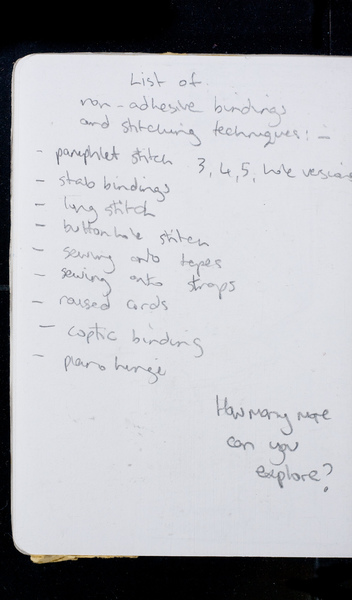 List of
non-adhesive bindings
and stitching techniques: -
- pamphlet stitch 3, 4, 5, hole versions
- stab bindings
- long stitch
- buttonhole stitch
- sewing onto tapes
- sewing onto straps
- raised cords
- coptic binding
- piano hinge
How many more
can you
explore?